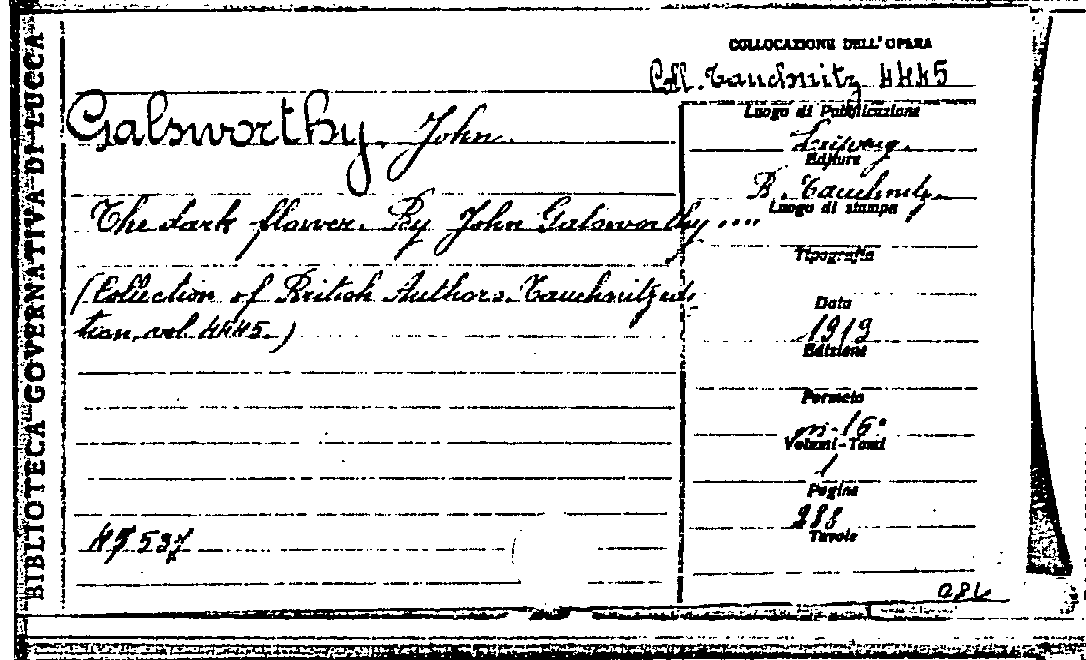 BIBLIOTECA GOVERNATIVA DI LUCCA
COLLOCAZIONE DELL'OPERA
Coll. Tauchnitz 4445
Galsworthy John
The dark flower. By John Galsworthy....
(Collection of British Authors. Tauchnitz edi-
tion, vol. 4445.)
Luogo di Pubblicazione
Leipzig
Editore
B. Tauchnitz
Luogo di stampa
Tipografia
Data
1919
Edizione
Formato
in-16°
Volumi-Tomi
1
Pagine
288
Tavole